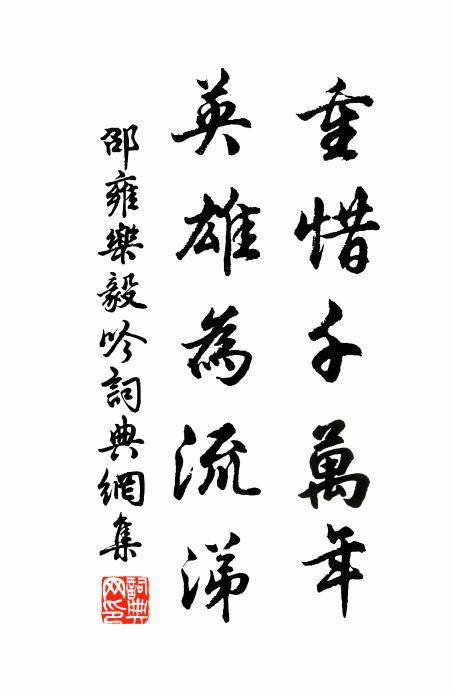 重惜千萬年
英雄為流涕
邵雍樂毅吟詞典網集
詞典網印